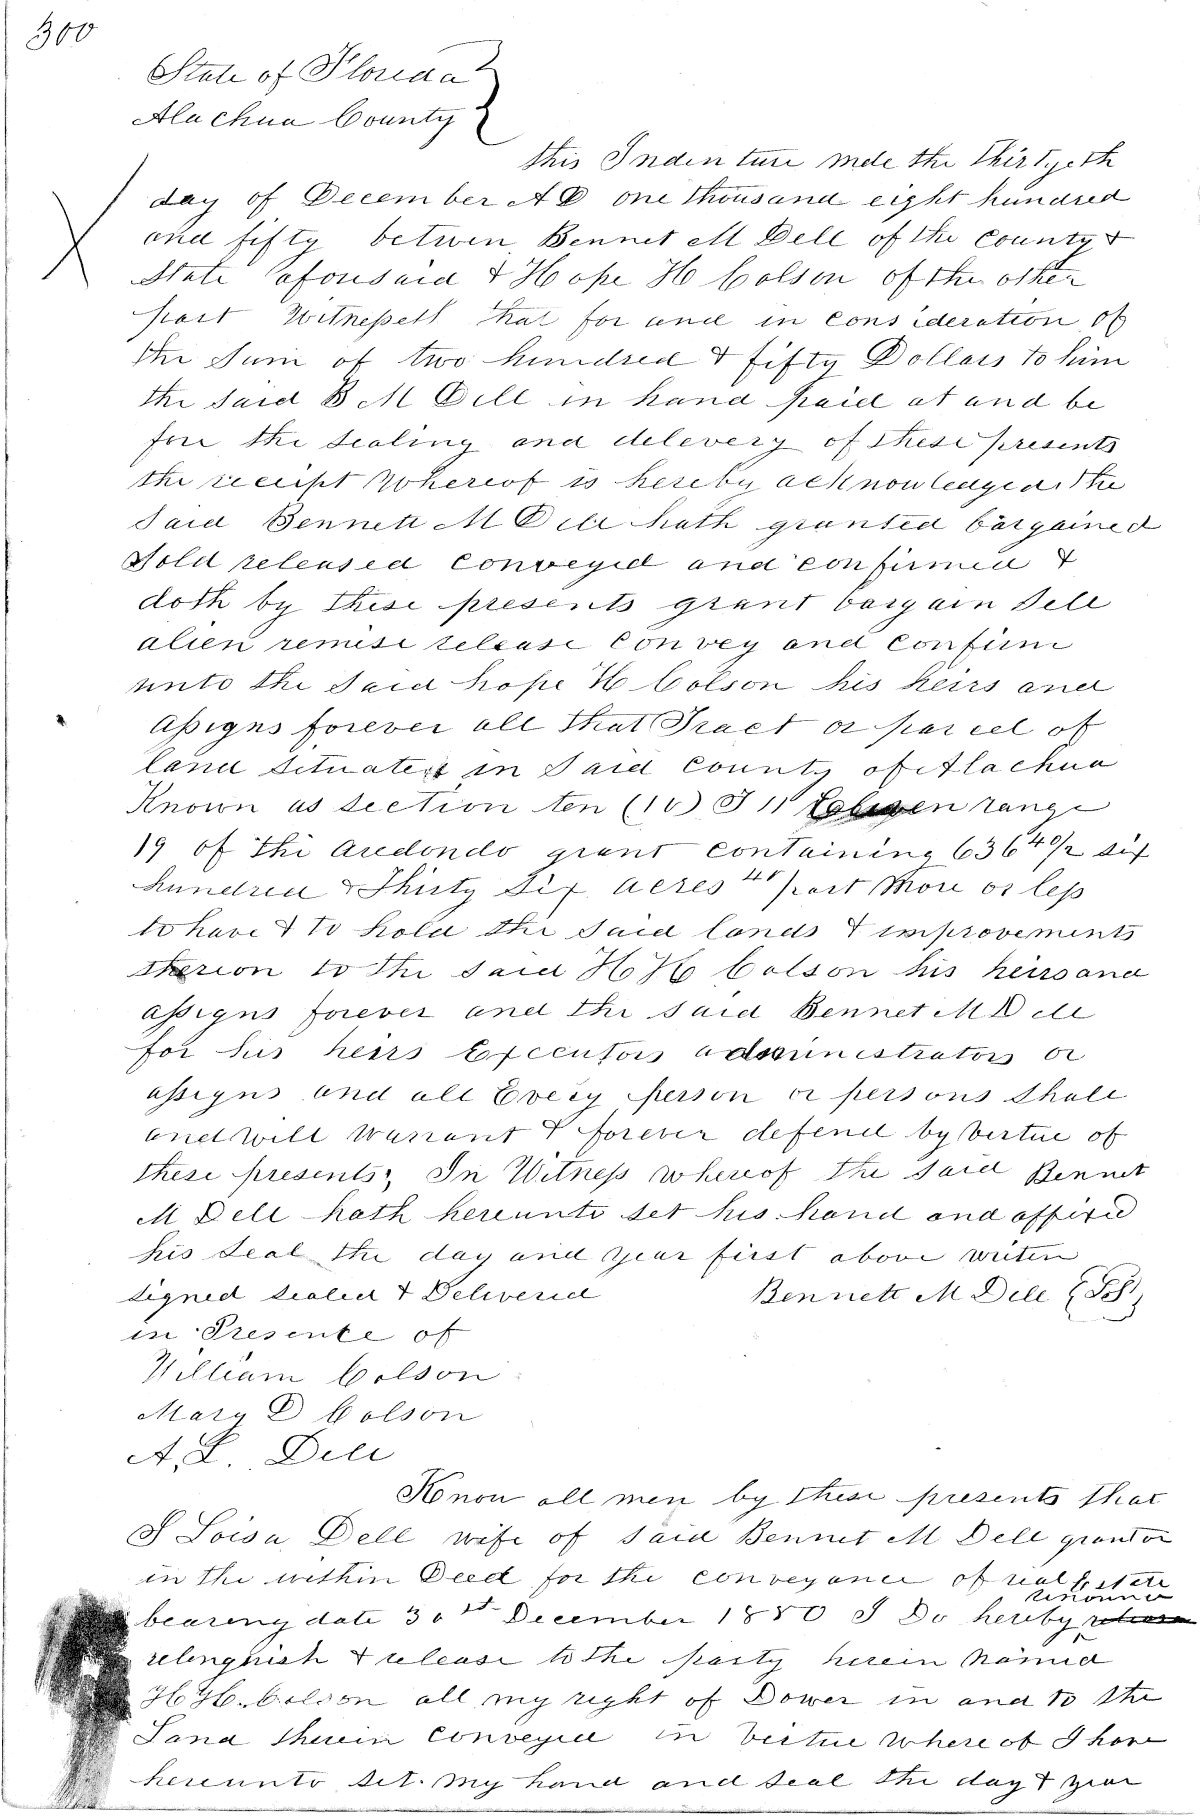 300
State of Florida
Alachua County
this Indenture mde the Thirtyeth
day of December A D one thousand eight hundred
and fifty betwen Bennet M Dell of the County &
State aforesaid & Hope H Colson of the other
part Witnesseth that for and in consideration of
the Sum of two hundred & fifty Dollars to him
the said B M Dell in hand paid at and be
fore the sealing and delevery of these presents
the receipt Whereof is hereby acknowledged the
Said Bennett M Dell hath granted bargained
Sold released conveyed and confirmed &
doth by these presents grant bargain Sell
alien remise release Convey and Confirm
unto the Said hope H Colson his heirs and
assigns forever all that Tract or parcel of
land situated in Said County of Alachua
Known as section ten (10) T 11 range
19 of the Aredondo grant containing 636 40/2 six
hundred & Thirty Six acres 40 part More or less
to have & to hold the said lands & improvements
therion to the said H H Colson his heirs and
assigns forever and the said Bennet M Dell
for his heirs Executors administrators or
assigns and all Every person or persons Shall
and will Warrant & forever defend by Vertue of
these presents, In Witness whereof the said Bennet
M Dell hath hereunto set his hand and affixed
his seal the day and year first above writen
signed sealed & Delivered Bennett M Dell
in Presence of
William Colson
Mary D Colson
A. L. Dell
Know all men by these presents that
I Loisa Dell wife of said Bennet M Dell grantor
in the within Deed for the conveyance of real Estate
renounce
bearing date 30st December 1880 I Do hereby release
relenquish & release to the party herein Named
H H. Colson all my right of Dower in and to the
Land therein Conveyed in Vertue Whereof I have
hereunto set. my hand and seal the day & year